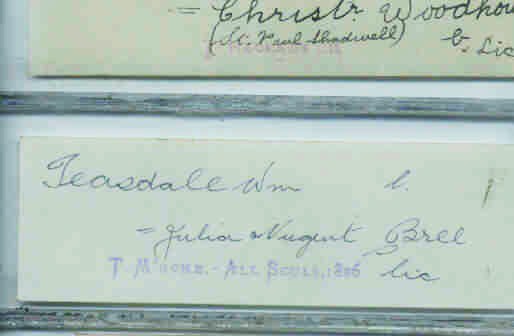 = Christr. Woodhou
(St. Paul Shadwell) b. Lic
Teasdale Wm b.
= Julia Nugent Bree
lic
T. M'HOME. - ALL SOULS, 1866